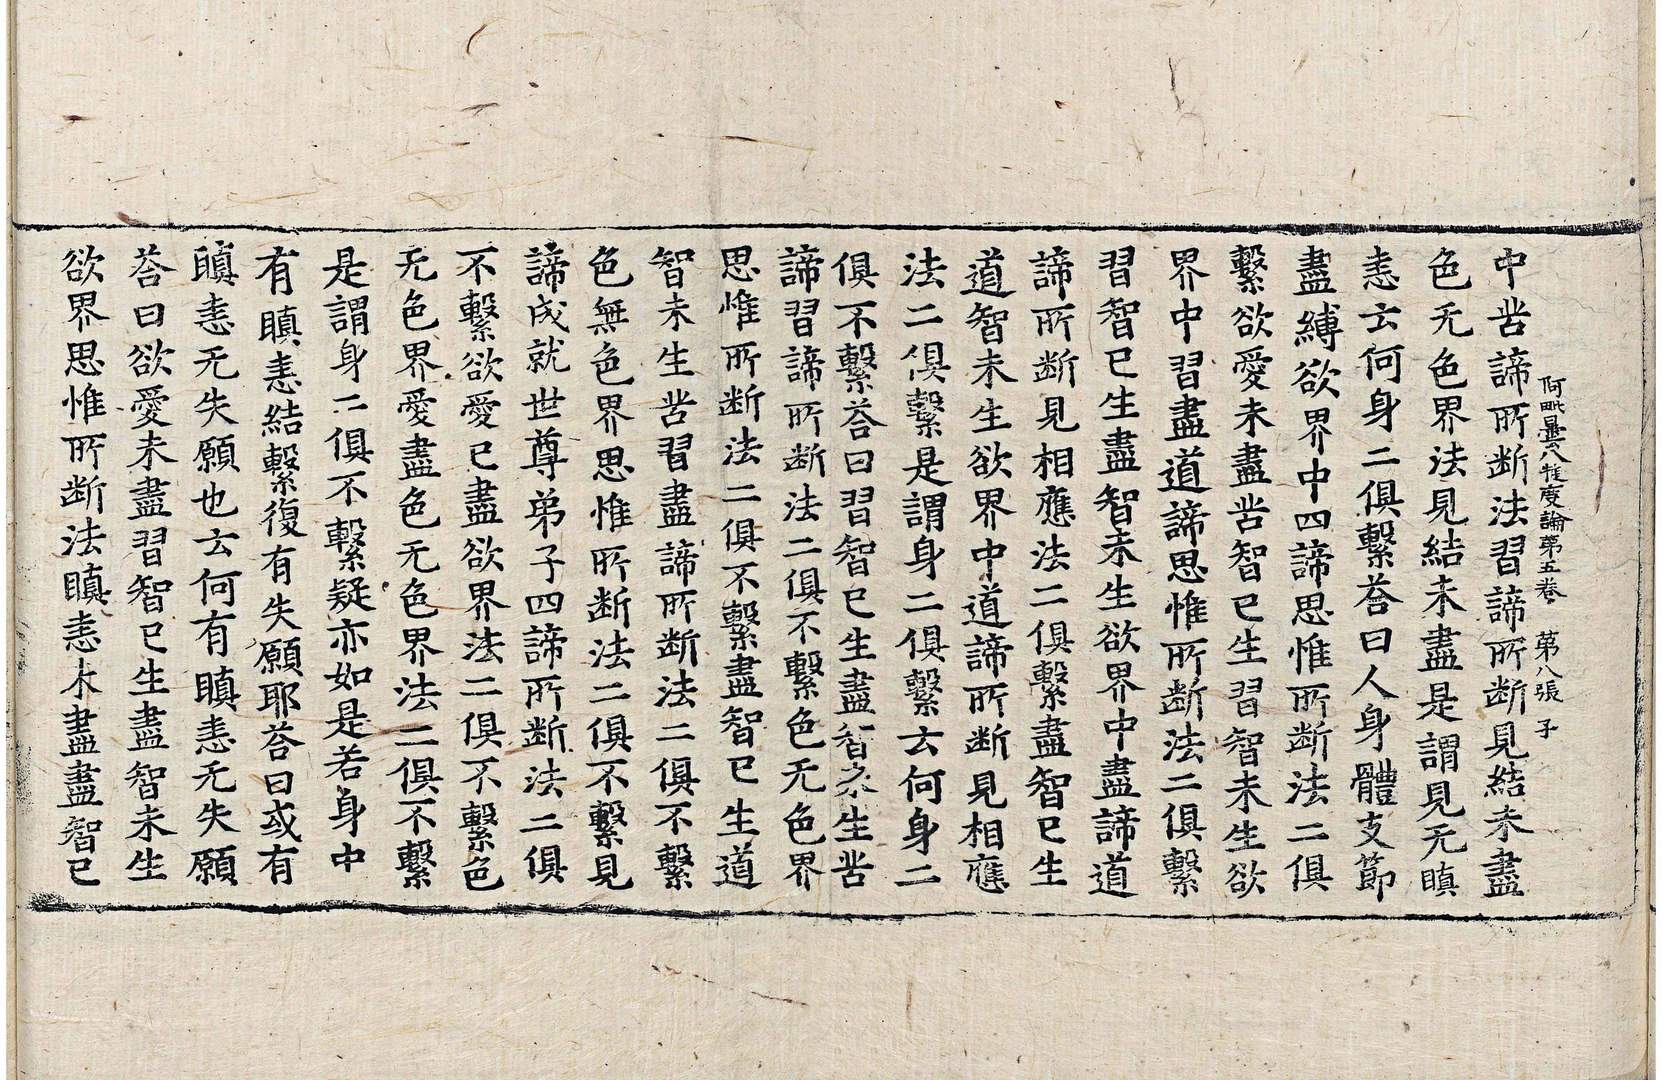 阿毗曇八揵度論第五卷　第八張　子
中苦諦所斷法習諦所斷見結未盡
色无色界法見結未盡是謂見无瞋
恚云何身二俱繫荅曰人身體支節
盡縛欲界中四諦思惟所斷法二俱
繫欲愛未盡苦智已生習智未生欲
界中習盡道諦思惟所斷法二俱繫
習智已生盡智未生欲界中盡諦道
諦所斷見相應法二俱繫盡智已生
道智未生欲界中道諦所斷見相應
法二俱繫是謂身二俱繫云何身二
俱不繫荅曰習智已生盡智未生苦
諦習諦所斷法二俱不繫色无色界
思惟所斷法二俱不繫盡智已生道
智未生苦習盡諦所斷法二俱不繫
色無色界思惟所斷法二俱不繫見
諦成就世尊弟子四諦所斷法二俱
不繫欲愛已盡欲界法二俱不繫色
无色界愛盡色无色界法二俱不繫
是謂身二俱不繫疑亦如是若身中
有瞋恚結繫復有失願耶荅曰或有
瞋恚无失願也云何有瞋恚无失願
荅曰欲愛未盡習智已生盡智未生
欲界思惟所斷法瞋恚未盡盡智已